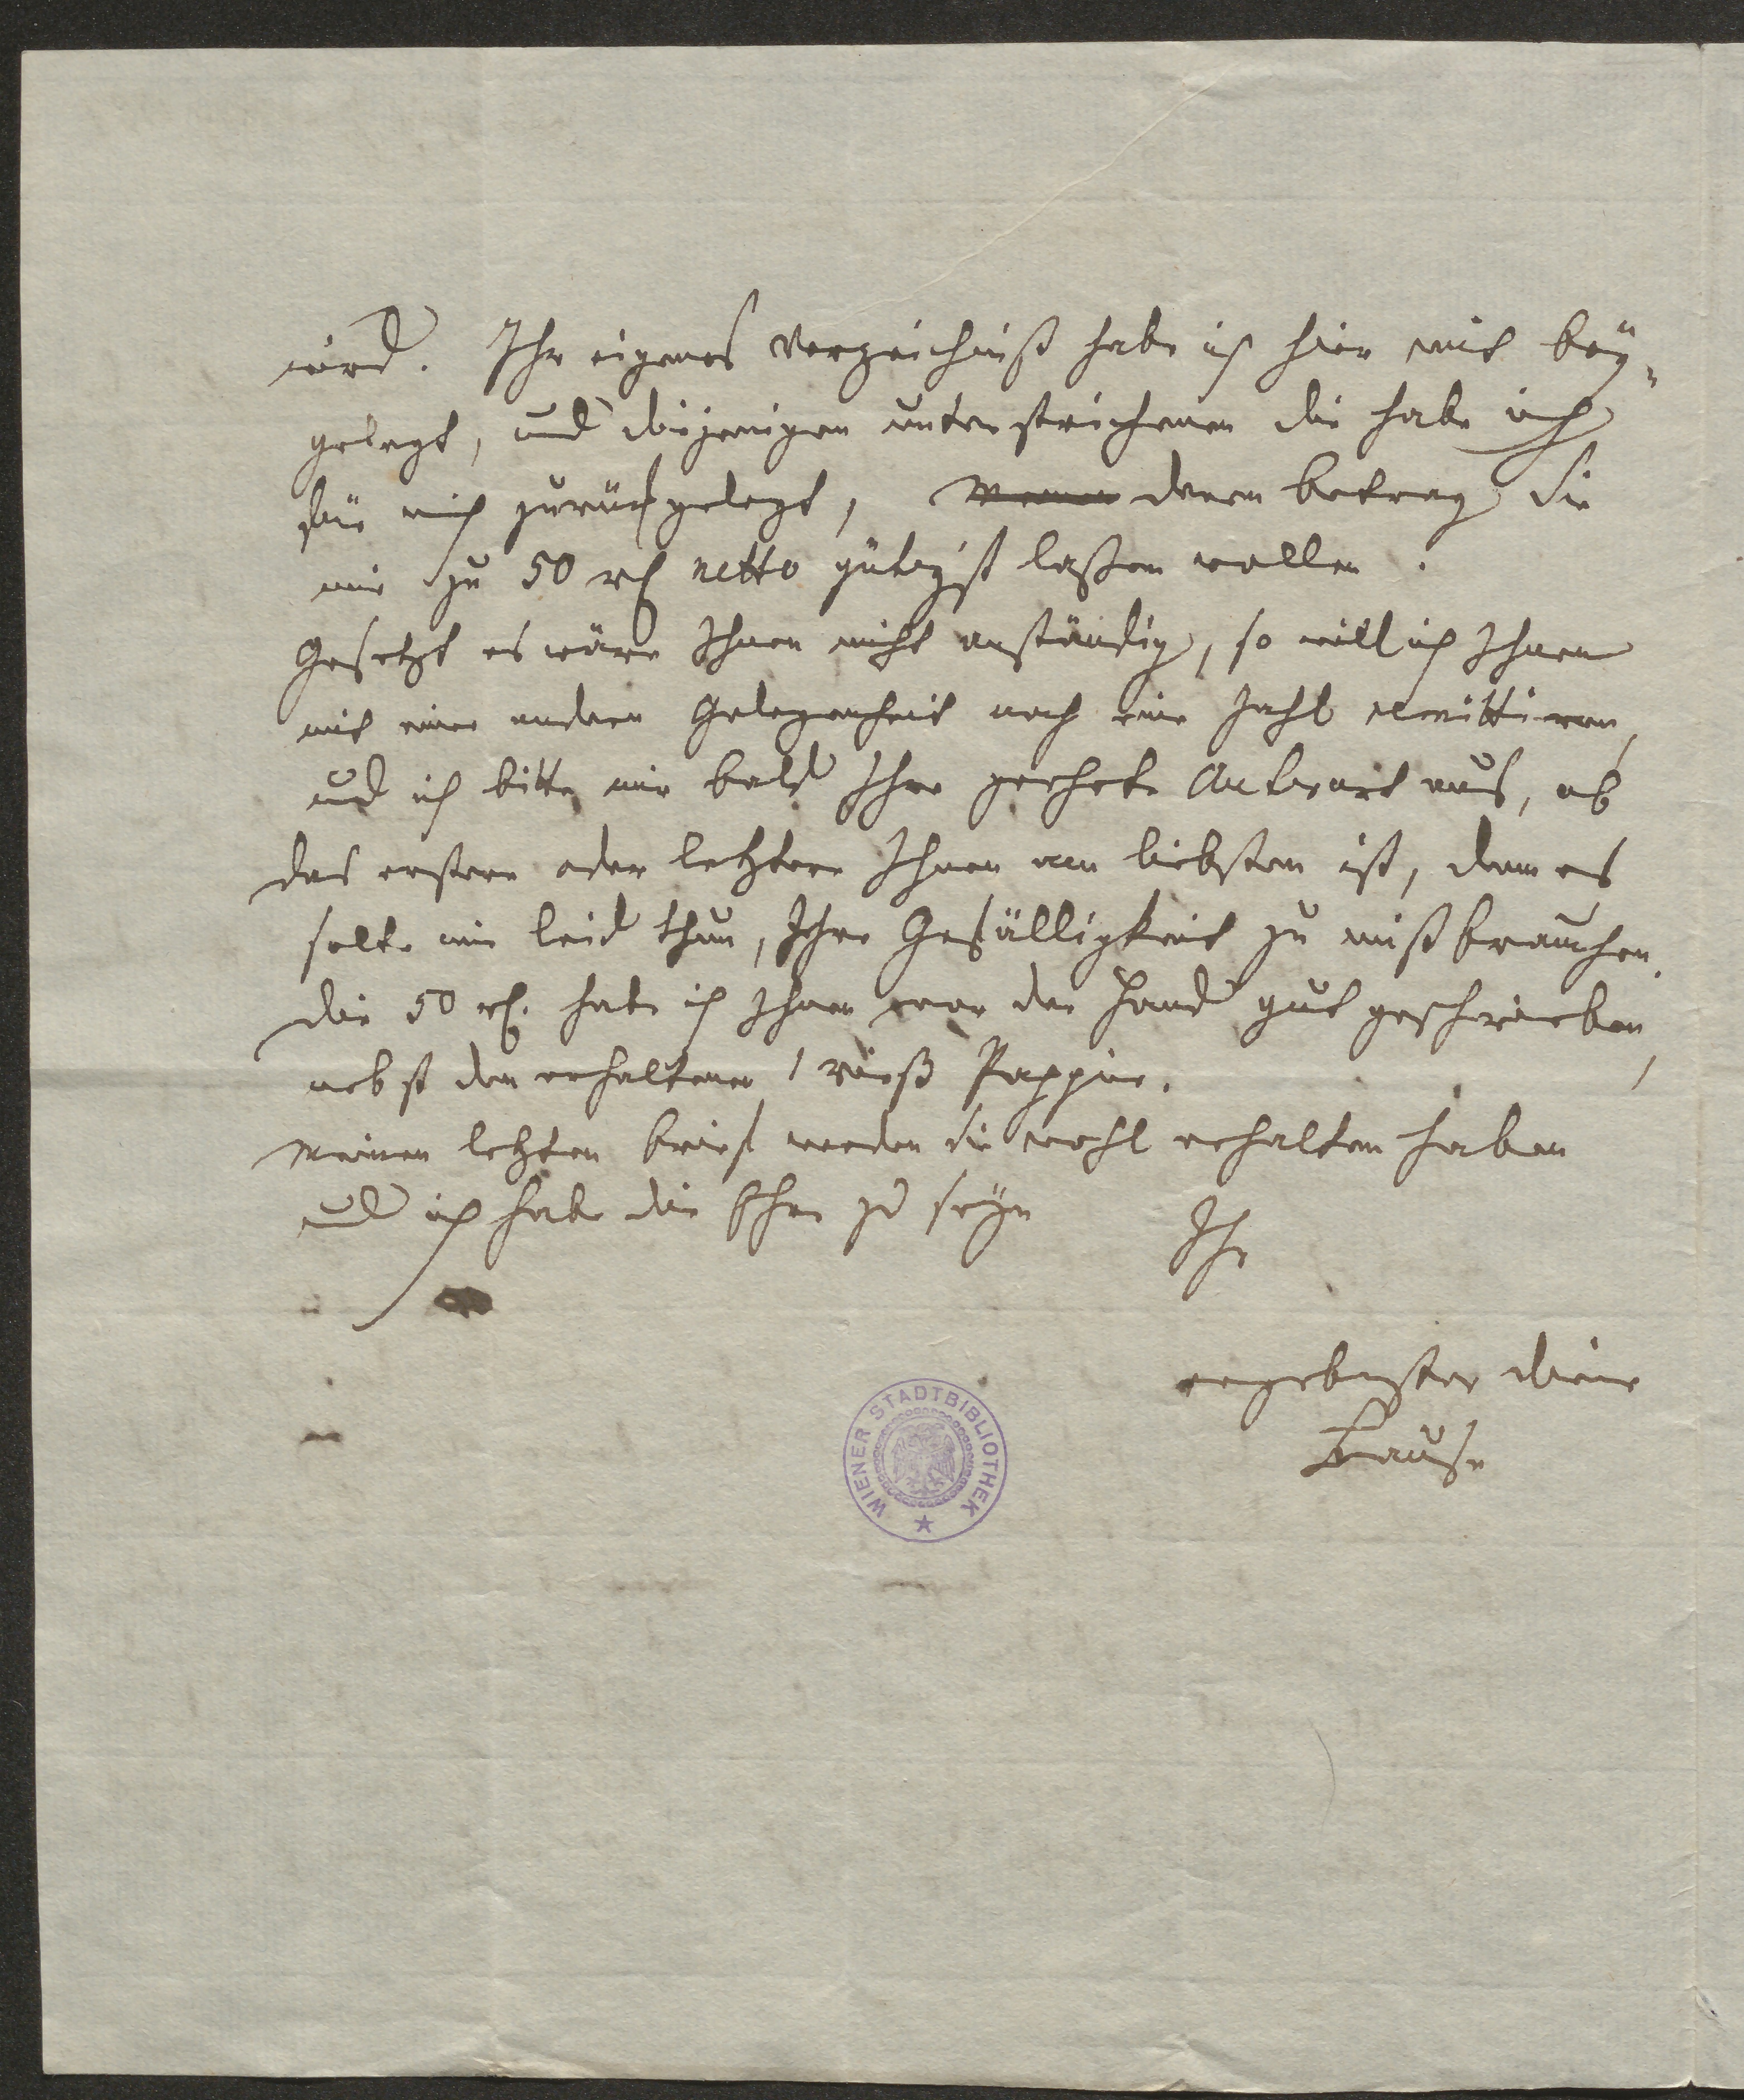 wird. Ihr eigenes Verzeichniß habe ich hier mit bey¬
gelegt, und diejenigen unterstrichenen die habe ich
für mich zurückgelegt, deren betrag Sie
mir zu 50 rh netto gütigst laßen wollen.
Gesetzt es wäre Ihnen nicht anständig, so will ich Ihnen
mit einer andern Gelegenheit noch eine Zahl remittiren,
und ich bitte mir bald Ihre geehrte Antwort aus, ob
das erstere oder letztere Ihnen am liebsten ist, denn es
solte mir leid thun, Ihre Gefälligkeit zu mißbrauchen.
Die 50 rh. habe ich Ihnen vor der Hand gut geschrieben,
nebst den erhaltenen 1 rieß Pappier.
Meinen letzten brief werden Sie wohl erhalten haben
und ich habe die Ehre zu seyn
Ihr
ergebenster diener
Bause
WIENER STADTBIBLIOTHEK